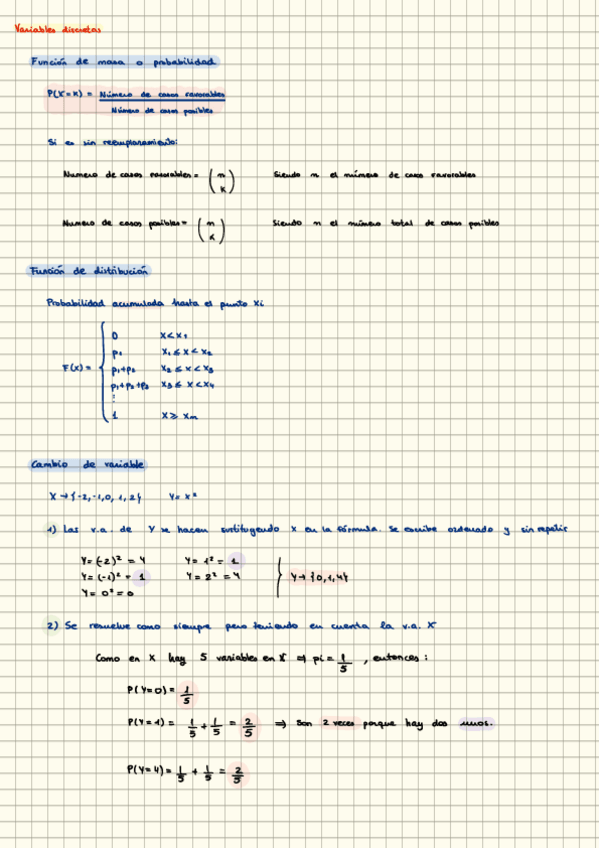 Variables discretas
Función de masa o probabilidad
P(X=x) = Número de casos favorables / Número de casos posibles
Si es sin reemplazamiento:
Numero de casos favorables = (n k) Siendo n el número de casos favorables
Numero de casos posibles = (n k) Siendo n el número total de casos posibles
Función de distribución
Probabilidad acumulada hasta el punto xi
F(x) = {
0 x<x₁
p₁ x₁ ≤ x < x₂
p₁+p₂ x₂ ≤ x < x₃
p₁+p₂+p₃ x₃ ≤ x < x₄
⋮
1 x ≥ xₙ
Cambio de variable
X → {-2,-1,0,1,2} Y = x²
1) Las v.a. de Y se hacen sustituyendo x en la fórmula. Se escribe ordenado y sin repetir
Y = (-2)² = 4 Y = 1² = 1
Y = (-1)² = 1 Y = 2² = 4 Y → {0,1,4}
Y = 0² = 0
2) Se resuelve como siempre pero teniendo en cuenta la v.a. X
Como en X hay 5 variables en X ⇒ pi = 1/5, entonces:
P(Y=0) = 1/5
P(Y=1) = 1/5 + 1/5 = 2/5 ⇒ Son 2 veces porque hay dos unos.
P(Y=4) = 1/5 + 1/5 = 2/5